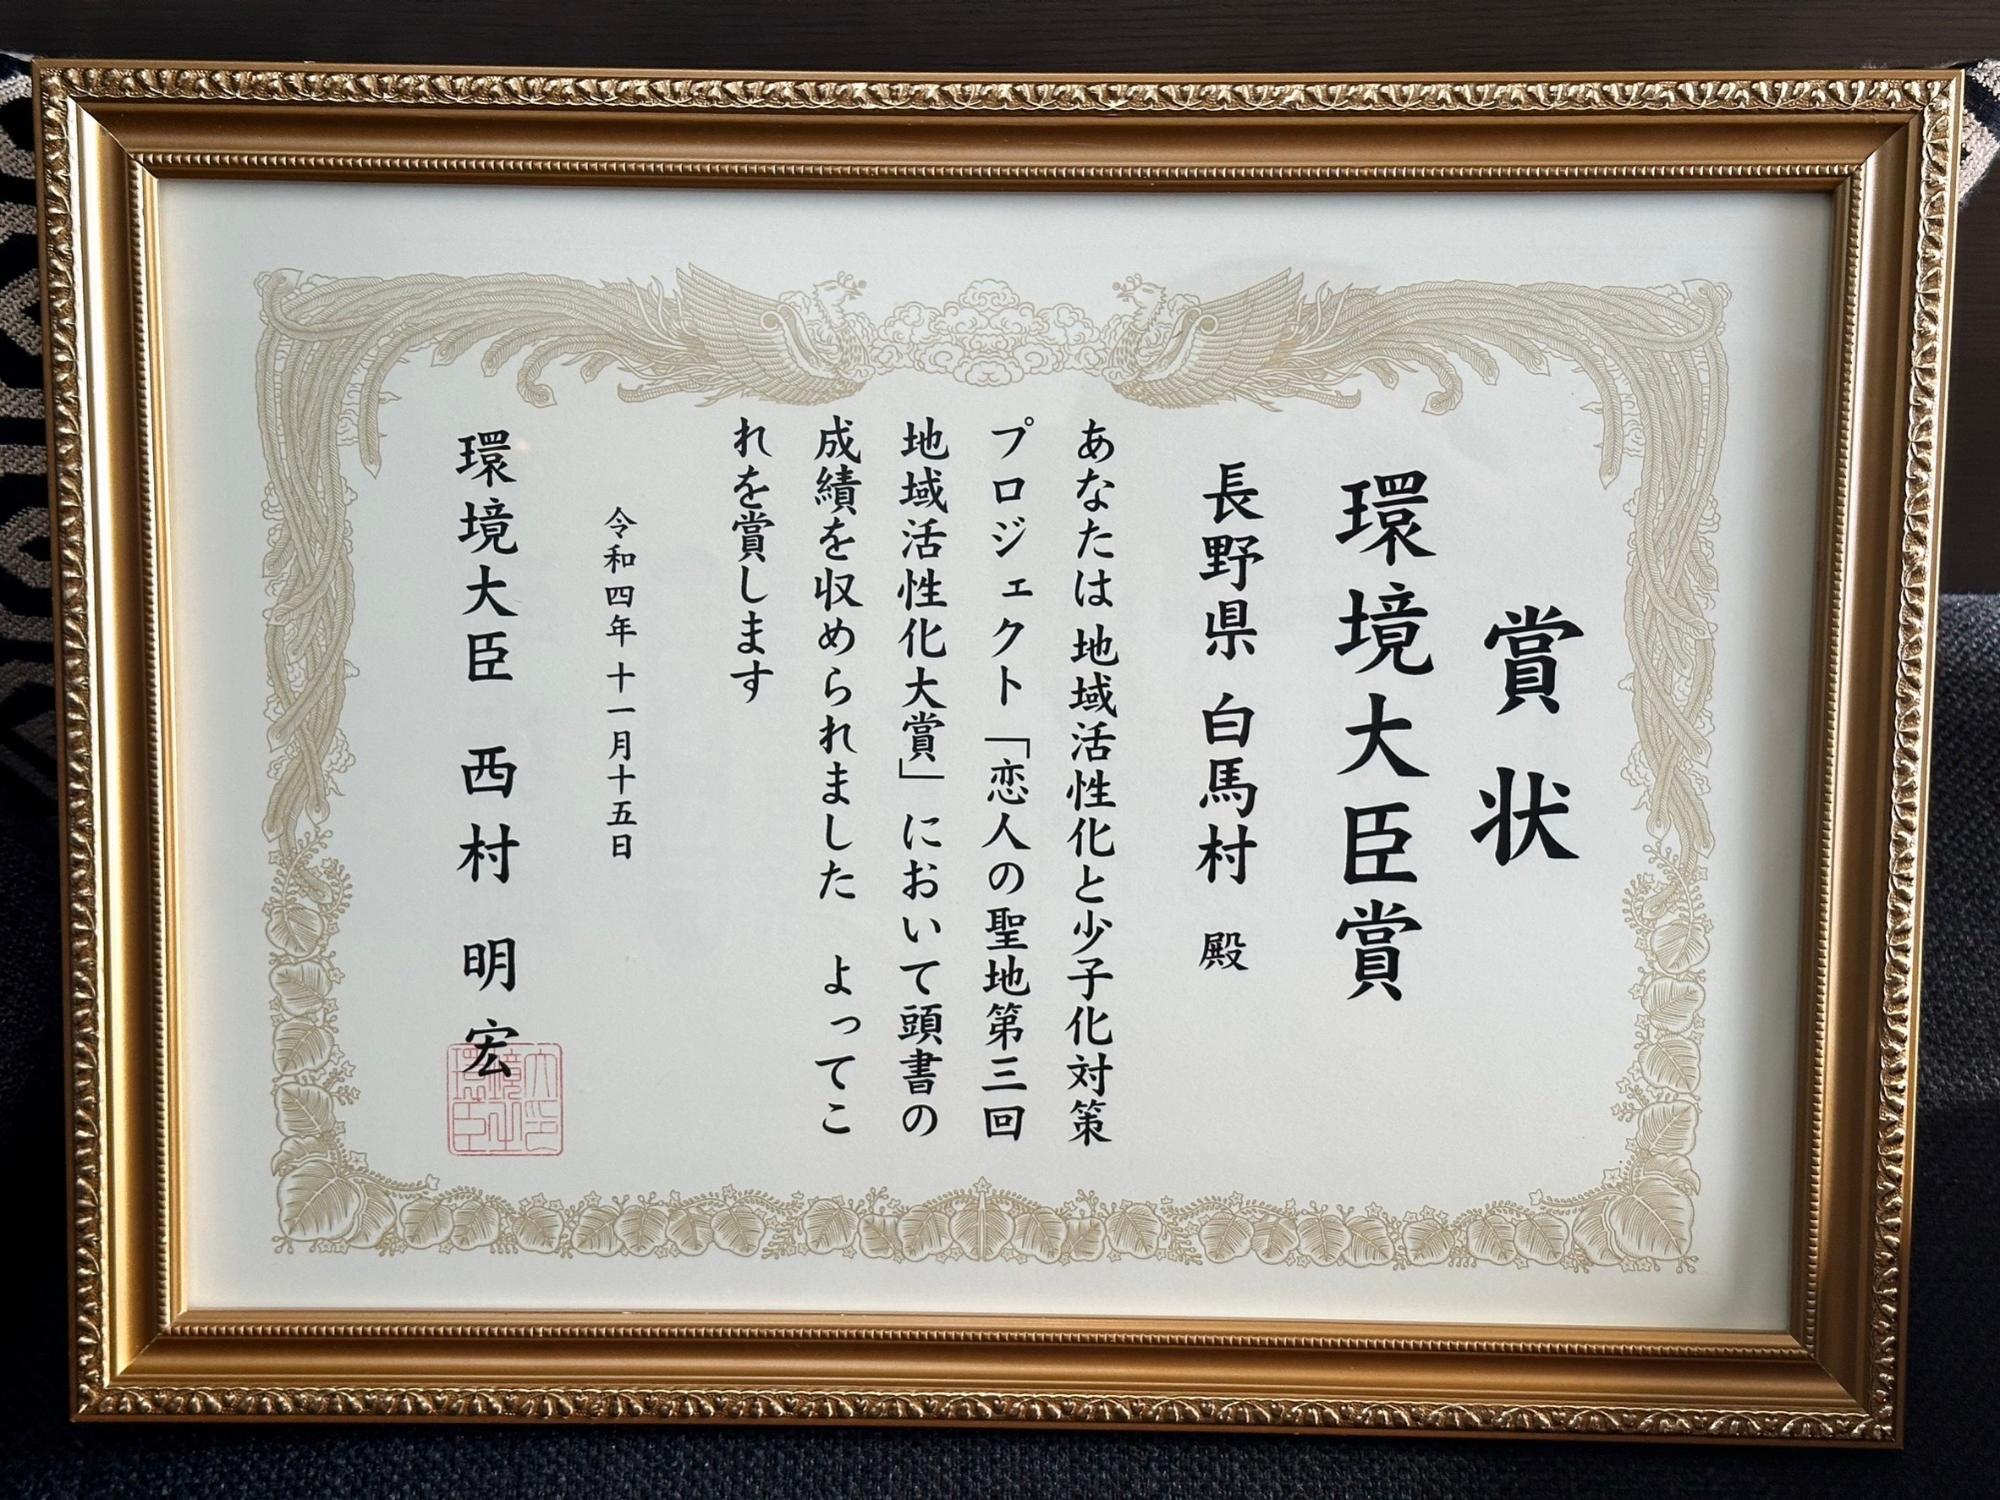 賞状
環境大臣賞
長野県 白馬村 殿
あなたは 地域活性化と少子化対策
プロジェクト「恋人の聖地第三回
地域活性化大賞」において頭書の
成績を収められました よってこ
れを賞します
令和四年 十一月十五日
環境大臣 西村 明宏